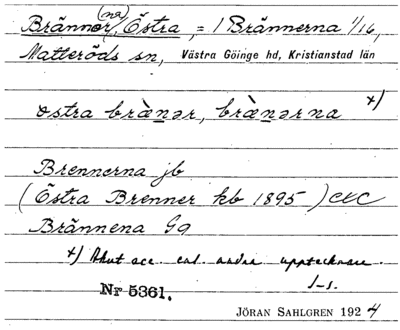 Bränner(na), Östra, = 1 Brännerna 1/16,
Matteröds sn, Västra Göinge hd, Kristianstad län
östra brὰnər, brὰnərna x)
Brennerna jb
(Östra Brenner kb 1895)
Brännena Gg
x) Akut acc. enl. andra upptecknare.
J-s.
Nr 5361.
JÖRAN SAHLGREN 1924